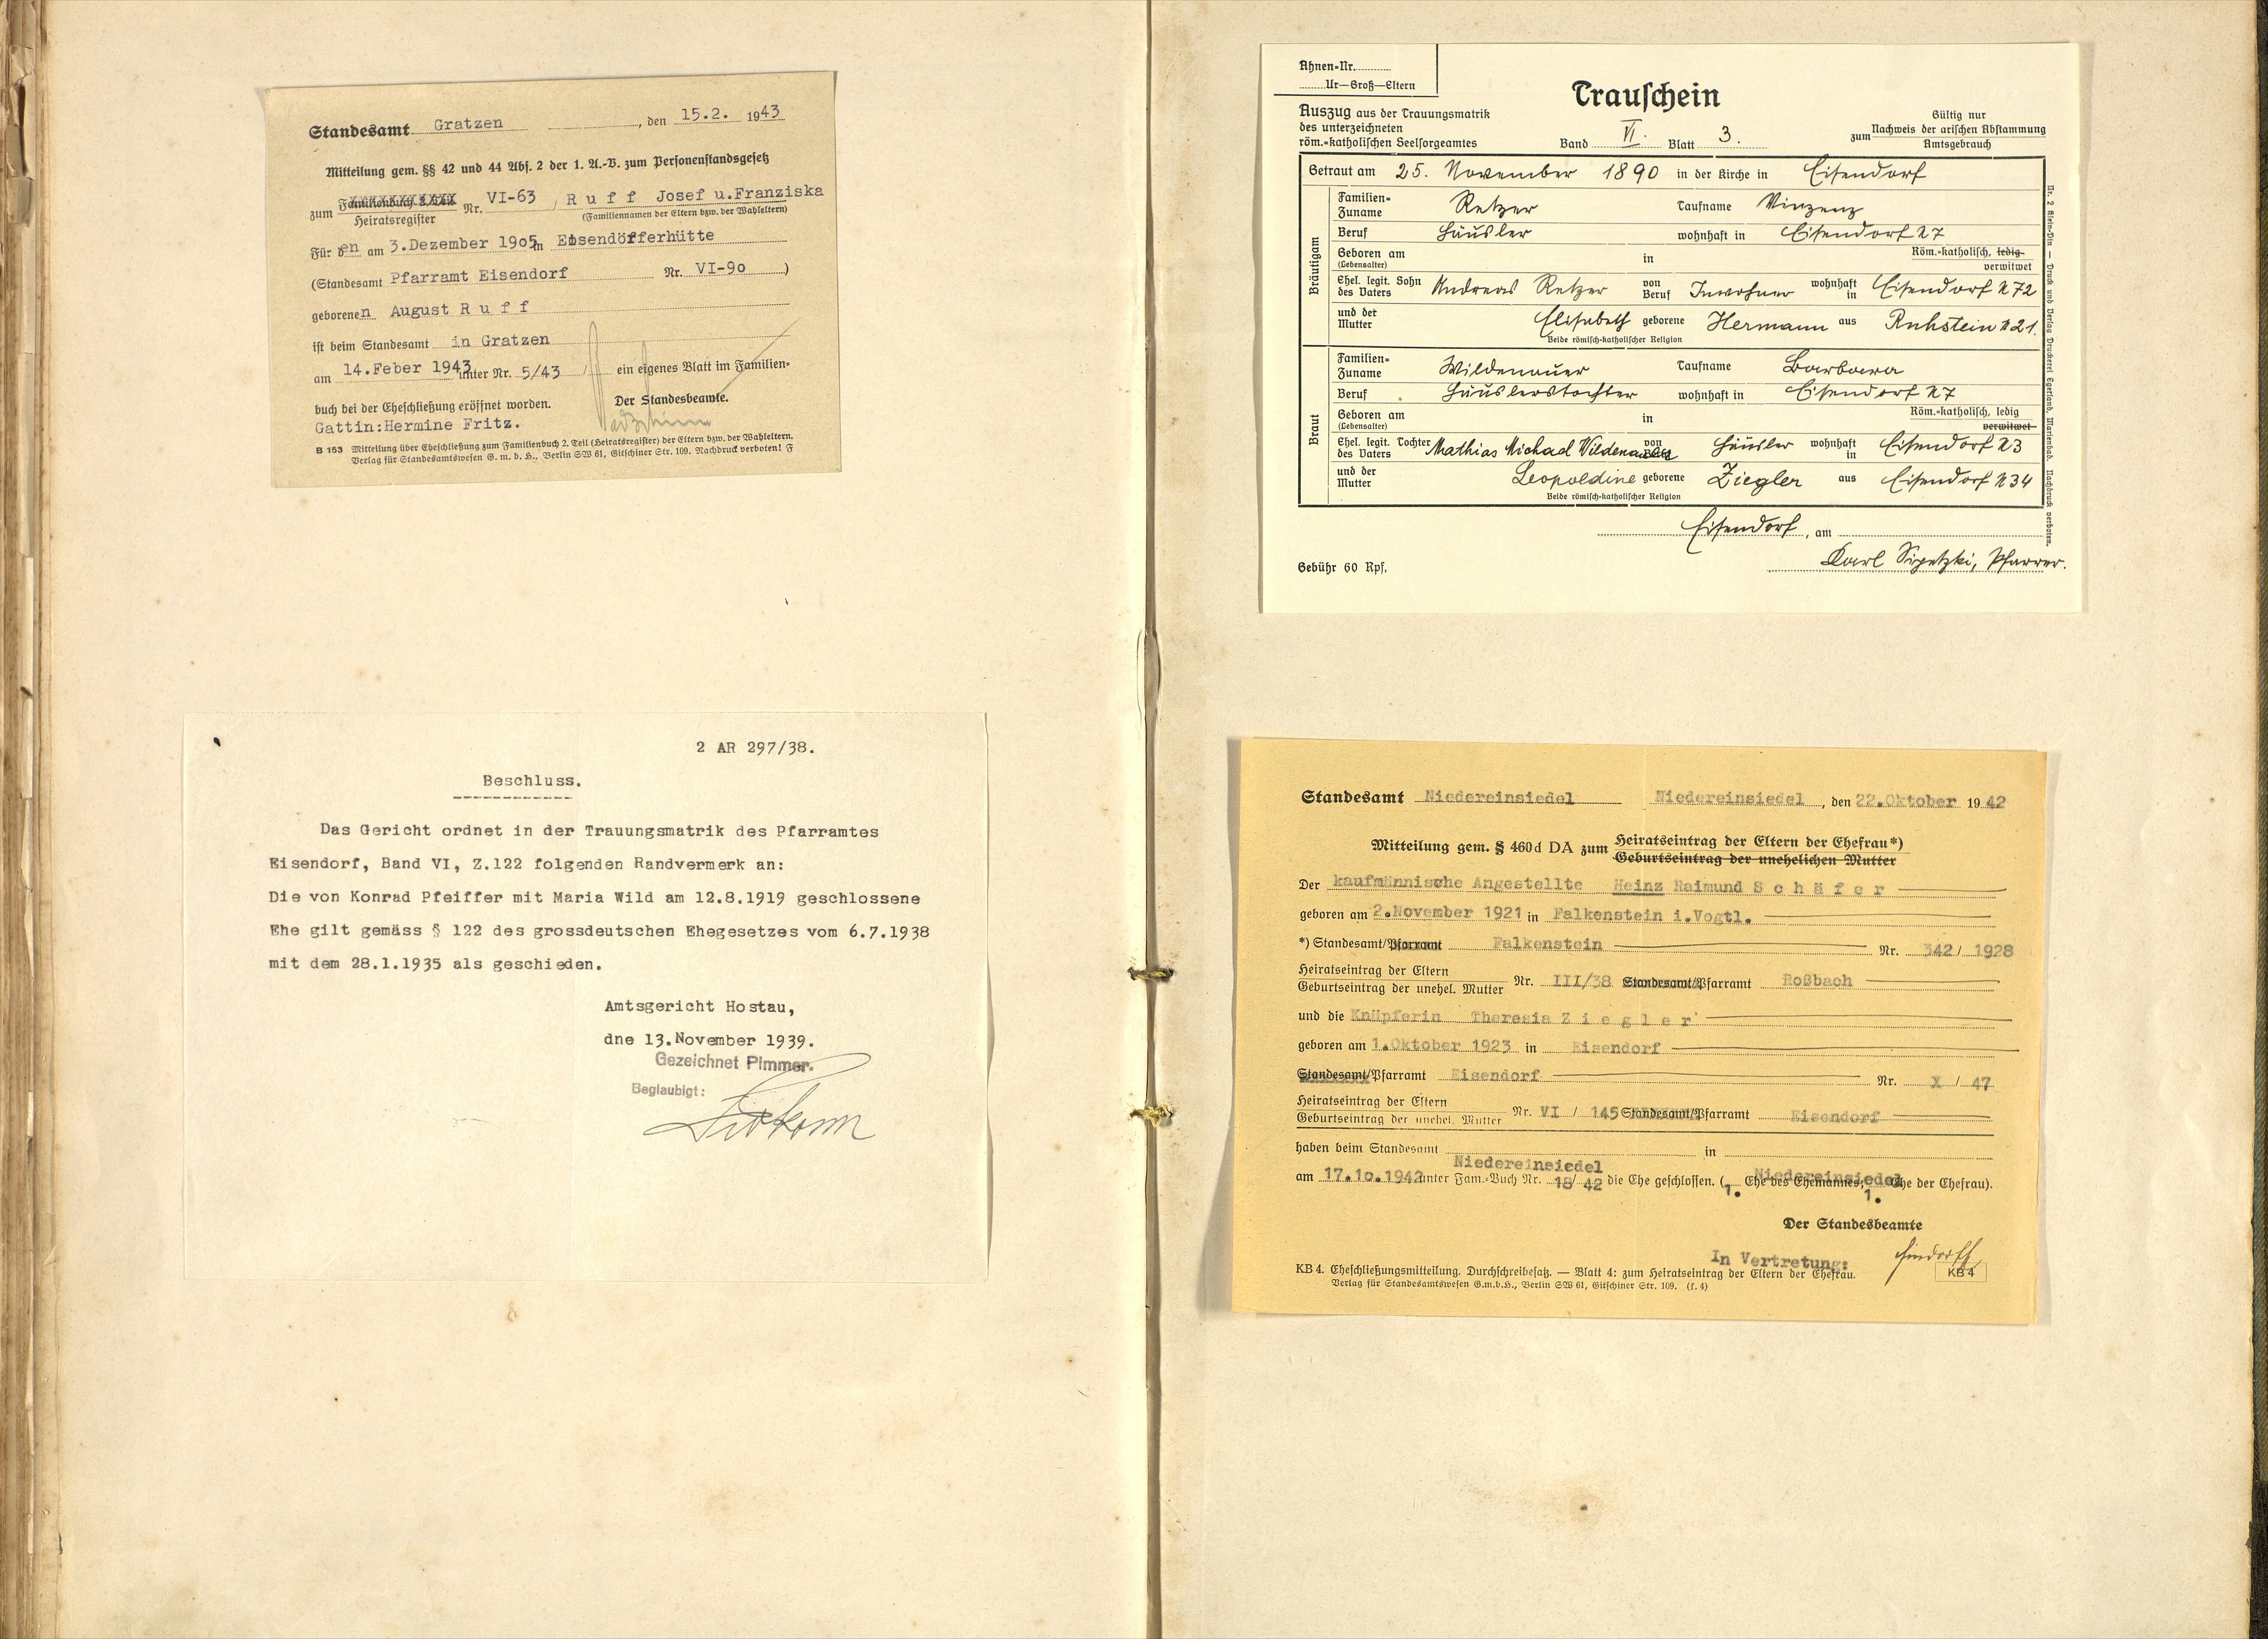 Standesamt Gratzen, den 15.2. 1943
Mitteilung gem. §§ 42 und 44 Abs. 2 der 1. A.-V. zum Personenstandsgesetz
zum Familienbuch 2. Teil
Heiratsregister Nr. VI-63, Ruff Josef u.Franziska
(Familiennamen der Eltern bzw. der Wahleltern)
Für den am 3.Dezember 1905 in Eisendörferhütte
(Standesamt Pfarramt Eisendorf Nr. VI-90)
geborenen August Ruff
ist beim Standesamt in Gratzen
am 14.Feber 1943 unter Nr. 5/43 ein eigenes Blatt im Familien-
buch bei der Eheschließung eröffnet worden. Der Standesbeamte.
Gattin:Hermine Fritz.
B 153 Mitteilung über Eheschließung zum Familienbuch 2. Teil (Heiratsregister) der Eltern bzw. der Wahleltern.
Verlag für Standesamtswesen G. m. b. H., Berlin SW 61, Gitschiner Str. 109. Nachdruck verboten! F
2 AR 297/38.
Beschluss.
Das Gericht ordnet in der Trauungsmatrik des Pfarramtes
Eisendorf, Band VI, Z.122 folgenden Randvermerk an:
Die von Konrad Pfeiffer mit Maria Wild am 12.8.1919 geschlossene
Ehe gilt gemäss § 122 des grossdeutschen Ehegesetzes vom 6.7.1938
mit dem 28.1.1935 als geschieden.
Amtsgericht Hostau,
dne 13.November 1939.
Gezeichnet Pimmer.
Beglaubigt:
Ahnen-Nr.
Ur—Groß—Eltern
Trauschein
Auszug aus der Trauungsmatrik
des unterzeichneten
röm.-katholischen Seelsorgeamtes
Band VI. Blatt 3.
Gültig nur
zum Nachweis der arischen Abstammung
Amtsgebrauch
Getraut am 25. November 1890 in der Kirche in Eisendorf
Bräutigam
Familien-Zuname Retzer Taufname Vinzenz
Beruf Häusler wohnhaft in Eisendorf N7
Geboren am (Lebensalter) in Röm.-katholisch, ledig verwitwet
Ehel. legit. Sohn des Vaters Andreas Retzer von Beruf Inwohner wohnhaft in Eisendorf N72
und der Mutter Elisabeth geborene Hermann aus Ruhstein N21.
Beide römisch-katholischer Religion
Braut
Familien-Zuname Wildenauer Taufname Barbara
Beruf Häuslerstochter wohnhaft in Eisendorf N7
Geboren am (Lebensalter) in Röm.-katholisch, ledig verwitwet
Ehel. legit. Tochter des Vaters Mathias Michael Wildenauer von Beruf Häusler wohnhaft in Eisendorf N3
und der Mutter Leopoldine geborene Ziegler aus Eisendorf N34
Beide römisch-katholischer Religion
Eisendorf, am
Karl Sipetzki, Pfarrer.
Gebühr 60 Rpf.
Nr. 2 Klein-Din — Druck und Verlag Druckerei Egerland, Marienbad. Nachdruck verboten.
Standesamt Niedereinsiedel Niedereinsiedel, den 22.Oktober 1942
Mitteilung gem. § 460d DA zum Heiratseintrag der Eltern der Ehefrau*)
Geburtseintrag der unehelichen Mutter
Der kaufmännische Angestellte Heinz Raimund Schäfer
geboren am 2.November 1921 in Falkenstein i.Vogtl.
*) Standesamt/Pfarramt Falkenstein Nr. 342/ 1928
Heiratseintrag der Eltern
Geburtseintrag der unehel. Mutter Nr. III/38 Standesamt/Pfarramt Roßbach
und die Knüpferin Theresia Ziegler
geboren am 1.Oktober 1923 in Eisendorf
Standesamt/Pfarramt Eisendorf Nr. X / 47
Heiratseintrag der Eltern
Geburtseintrag der unehel. Mutter Nr. VI / 145 Standesamt/Pfarramt Eisendorf
haben beim Standesamt Niedereinsiedel in Niedereinsiedel
am 17.10.1942 unter Fam.-Buch Nr. 18/ 42 die Ehe geschlossen. (1. Ehe des Ehemannes, 1. Ehe der Ehefrau).
Der Standesbeamte
In Vertretung:
KB 4. Eheschließungsmitteilung. Durchschreibesatz. — Blatt 4: zum Heiratseintrag der Eltern der Ehefrau.
KB 4
Verlag für Standesamtswesen G.m.b.H., Berlin SW 61, Gitschiner Str. 109. (f. 4)